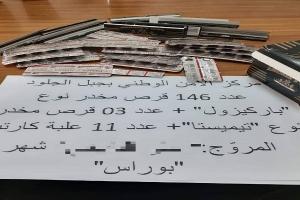 مركز الأمن الوطني بجبل الجلود
عدد 146 قرص مخدر نوع
"باركيزول" + عدد 03 قرص مخدر
نوع "تيميستا"+ عدد 11 علبة كارتة
المروّج:" شهر
"بوراس"